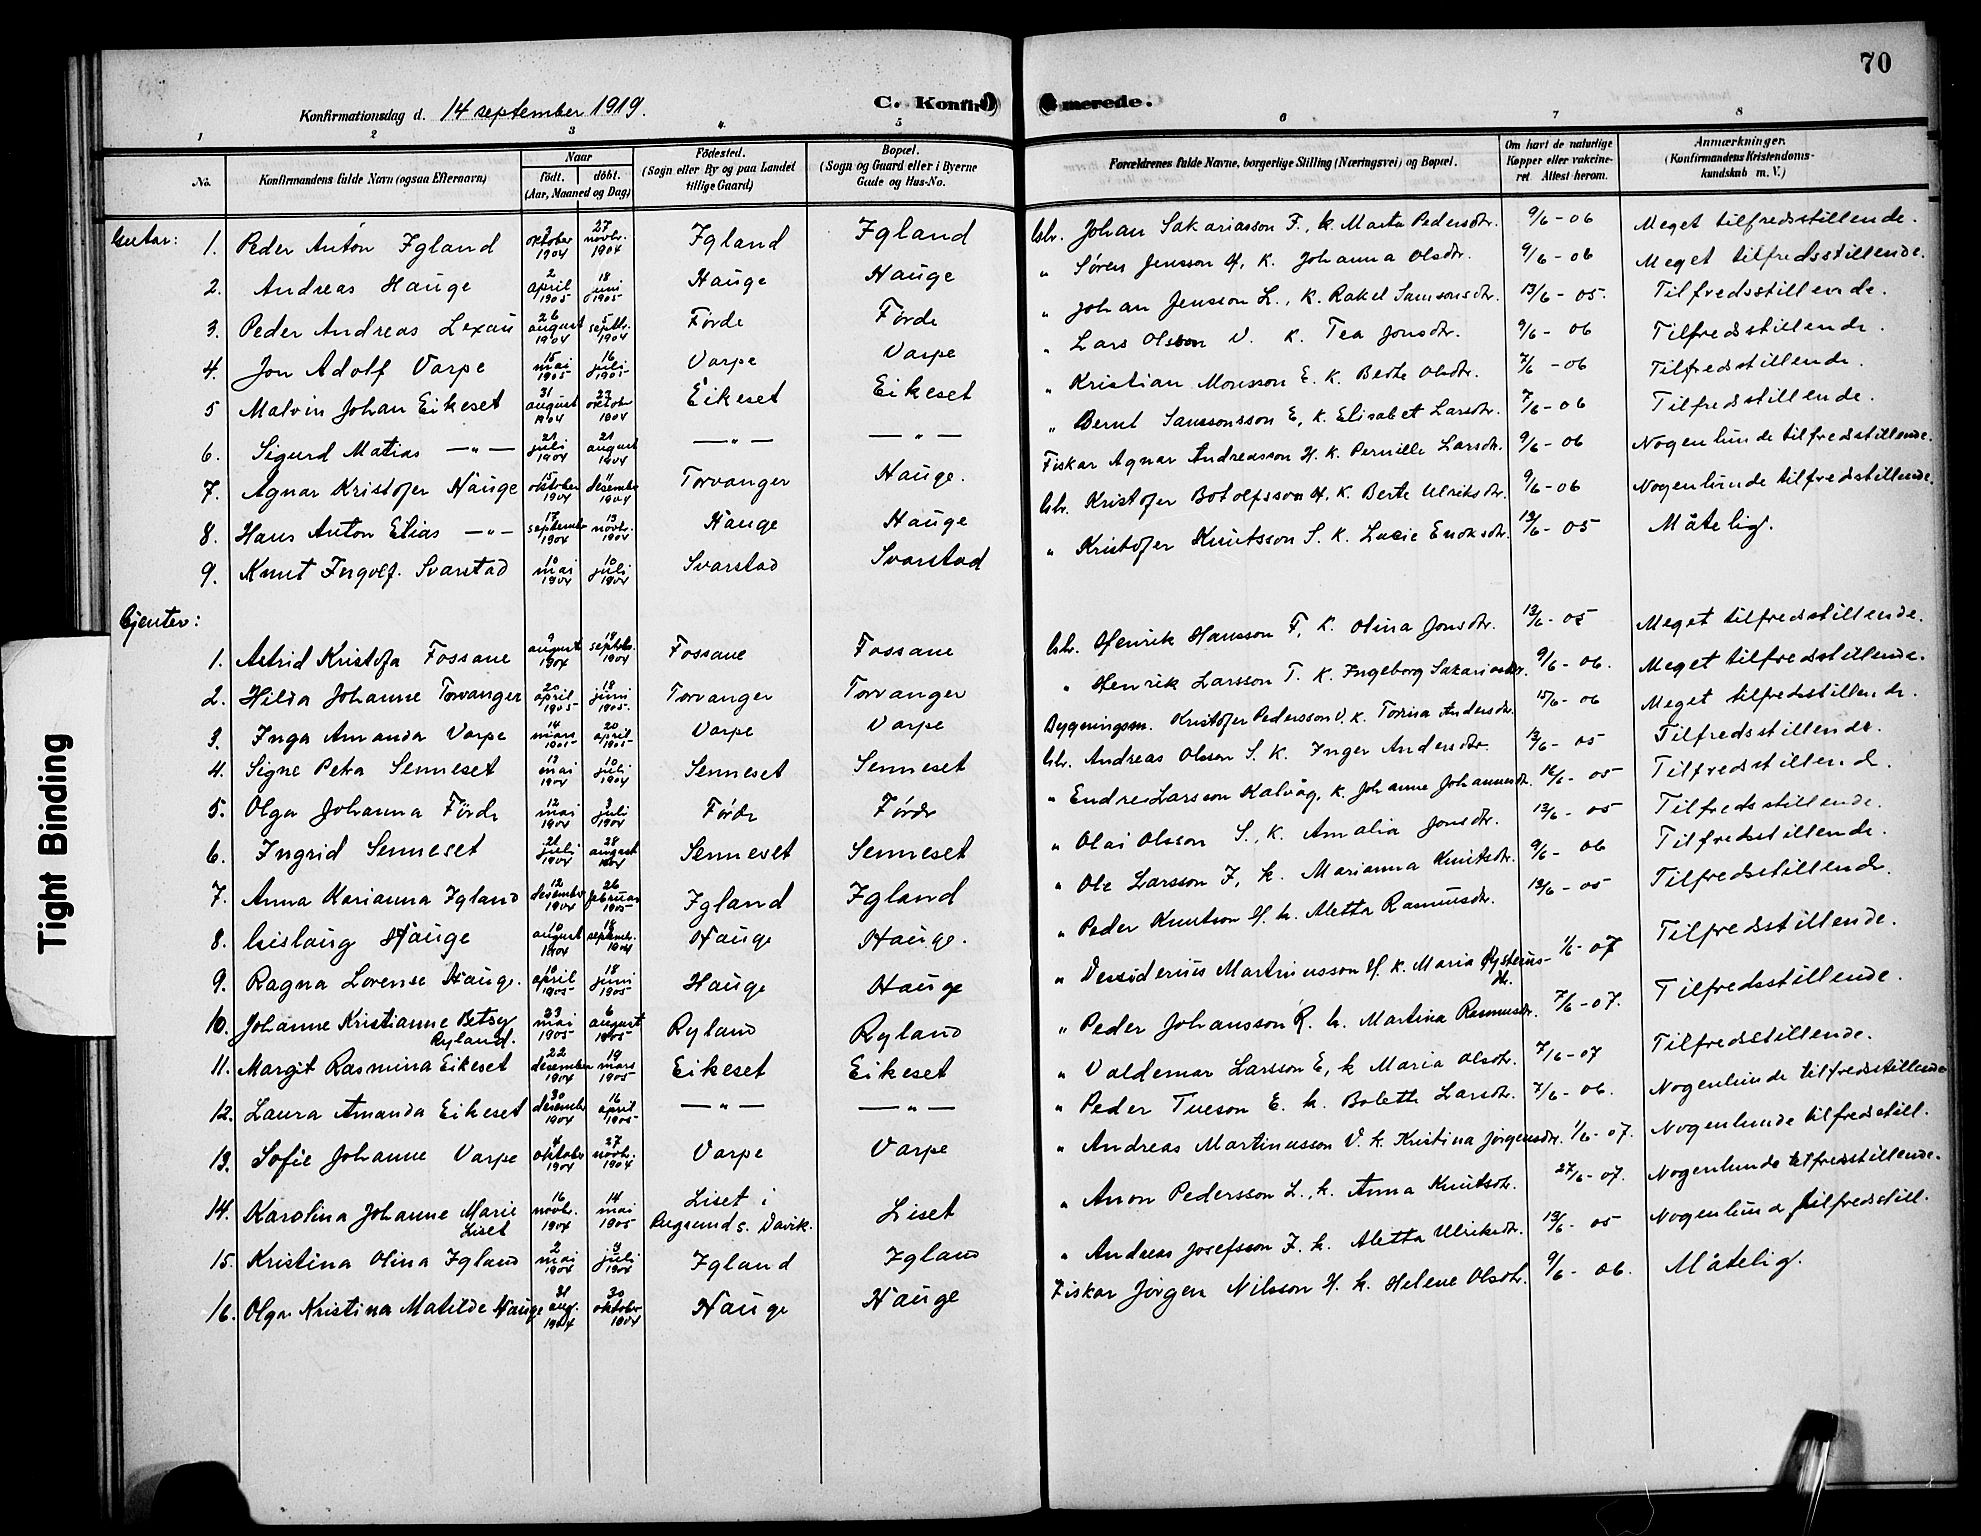 70
C. Konfirmerede.
Konfirmationsdag d. 14 september 1919.
1 2 3 4 5 6 7 8
No. Konfirmandens fulde Navn (ogsaa Efternavn) Naar født. døbt. (Aar, Maaned og Dag) Fødested. (Sogn eller By og paa Landet tillige Gaard) Bopæl. (Sogn og Gaard eller i Byerne Gade og Hus-No. Forældrenes fulde Navne, borgerlige Stilling (Næringsvei) og Bopæl. Om havt de naturlige Kopper eller vakcineret Attest herom. Anmærkninger. (Konfirmandens Kristendomskundskab m. V.)
Gutar:
1. Peder Anton Igland oktober 1904 27 novbr. 1904 Igland Igland Gbr. Johan Sakariasson F., k. Marta Pedersdtr. 9/6 - 06 Meget tilfredsstillende.
2. Andreas Hauge 2 april 1905 18 juni 1905 Hauge Hauge " Søren Jensson H, k. Johanna Olsdtr. 9/6 - 06 Meget tilfredsstillende.
3. Peder Andreas Lexau 26 august 1904 5 septbr. 1904 Förde Förde " Johan Jensson L., k. Rakel Samsonsdtr. 13/6 - 05. Tilfredsstillende.
4. Jon Adolf Varpe 15 mai 1905 16 juli 1905 Varpe Varpe " Lars Olsson V. k. Tea Jonsdtr. 9/6 - 06 Tilfredsstillende.
5 Malvin Johan Eikeset 31 august 1904 23 oktobr 1904 Eikeset Eikeset " Kristian Monsson E. k. Berte Olsdtr. 7/6 - 06 Tilfredsstillende.
6. Sigurd Matias — " — 21 juli 1904 21 august 1904 — " — — " — " Bernt Samsonsson E, k. Elisabet Larsdtr. 7/6 - 06 Tilfredsstillende.
7. Agnar Kristofer Hauge 15 oktober 1904 11 desember 1904 Torvanger Hauge. Fiskar Agnar Andreasson H. k. Pernille Larsdtr. 9/6 - 06 Nogenlunde tilfredsstillende.
8. Hans Anton Elias — " — 17 septembr 1904 13 novbr. 1904 Hauge Hauge Gbr. Kristofer Botolfsson H, k. Berte Ulriksdtr. 9/6 - 06 Nogenlunde tilfredsstillende.
9. Knut Ingolf. Svarstad 10 mai 1904 10 juli 1904 Svarstad Svarstad " Kristofer Knutsson S. k. Lucie Enoksdtr. 13/6 - 05 Måtelig.
Gjenter:
1. Astrid Kristofa Fossane 9 august 1904 18 septbr. 1904 Fossane Fossane Gbr. Henrik Hansson F, k. Olina Jonsdtr. 13/6 - 05 Meget tilfredsstillende.
2. Hilda Johanne Torvanger 20 april 1905 18 juni 1905. Torvanger Torvanger " Henrik Larsson T. k. Ingeborg Sakariasdtr. 9/6 - 06. Meget tilfredsstillende.
3. Inga Amanda Varpe 14 mars 1905 20 april 1905 Varpe Varpe Bygningsm. Kristofer Pedersson V. k. Torina Andersdtr. 15/6 - 06 Meget tilfredsstillende.
4. Signe Petra Senneset 13 mai 1904 10 juli 1904 Senneset Senneset Gbr. Andreas Olsson S. k. Inger Andersdtr. 13/6 - 05 Tilfredsstillende.
5. Olga Johanna Förde 12 mai 1904 3 juli 1904 Førde Førde " Endre Larsson Kalvåg, k. Johanne Johannesdtr. 16/6 - 05 Tilfredsstillende.
6. Ingrid Senneset 21 juli 1904 28 august 1904 Senneset Senneset " Olai Olsson S., k. Amalia Jonsdtr. 13/6 - 05 Tilfredsstillende.
7. Anna Marianna Igland 12 desember 1904 26 februar 1905 Igland Igland " Ole Larsson I, k. Marianna Knutsdtr. 9/6 - 06 Tilfredsstillende.
8. Gislaug Hauge 10 august 1904 18 septemb. 1904 Hauge Hauge. " Peder Knutson H. k. Aletta Rasmusdtr. 13/6 - 05 Tilfredsstillende.
9. Ragna Lovense Hauge. 10 april 1905 18 juni 1905 Hauge Hauge " Dessiderius Martinusson H. k. Maria 1/6 - 07 Tilfredsstillende.
10. Johanne Kristianne Betsy Ryland. 23 mai 1905 6 august 1905 Ryland Ryland " Peder Johansson R. k. Martina Rasmusdtr. 7/6 - 07. Tilfredsstillende.
11. Margit Rasmina Eikeset 22 desember 1904 19 mars 1905 Eikeset Eikeset " Valdemar Larsson E, k Maria Olsdtr. 7/6 - 07 Tilfredsstillende.
12. Laura Amanda Eikeset 30 desembr 1904 16 april 1905 — " — — " — " Peder Tueson E. k. Bolette Larsdtr. 7/6 - 06. Nogenlunde tilfredsstillende
13. Sofie Johanne Varpe 4 oktobr 1904 27 novbr. 1904 Varpe Varpe " Andreas Martinusson V. k. Kristina Jørgensdtr. 1/6 - 07. Nogenlunde tilfredsstill.
14. Karolina Johanne Marie Liset 16 novbr. 1904 14 mai 1905 Liset i Rugsund s. Davik. Liset " Anon Pedersson L., k. Anna Knutsdtr. 27/6 - 07. Nogenlunde tilfredsstillende.
15. Kristina Olina Igland 2 mai 1904 4 juli 1904 Igland Igland " Andreas Josefsson I. k. Aletta Ulriksdtr. 13/6 - 05 Nogenlunde tilfredsstill.
16. Olga Kristina Matilde Hauge 31 aug. 1904 30 oktobr 1904 Hauge Hauge Fiskar Jørgen Nilsson H. k. Helene Olsdtr. 9/6 - 06. Måtelig.
Tight Binding